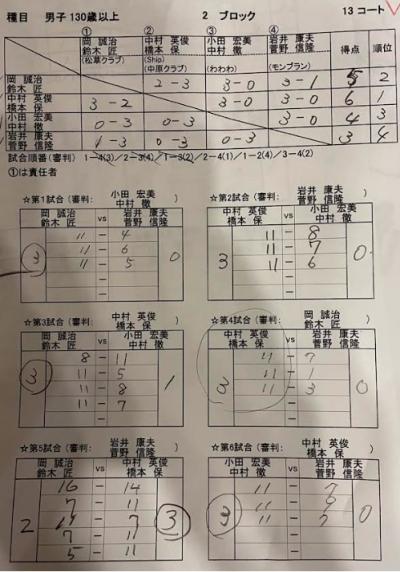 種目 男子130歳以上 2 ブロック 13 コート
① ② ③ ④
岡 誠治 中村 英俊 小田 宏美 岩井 康夫
鈴木 匠 橋本 保 中村 徹 菅野 信隆 得点 順位
(松草クラブ) (Ship) (わわわ) (モンブラン)
(中原クラブ)
岡 誠治
鈴木 匠 2-3 3-0 3-1 5 2
中村 英俊
橋本 保 3-2 3-0 3-0 6 1
小田 宏美
中村 徹 0-3 0-3 3-0 4 3
岩井 康夫
菅野 信隆 1-3 0-3 0-3 3 4
試合順番(審判) 1-4(3)/2-3(4)/1-3(2)/2-4(1)/1-2(4)/3-4(2)
①は責任者
☆第1試合(審判: 小田 宏美 中村 徹 )
岡 誠治 鈴木 匠 vs 岩井 康夫 菅野 信隆
3 0
11 - 4
11 - 6
11 - 5
☆第2試合(審判: 岩井 康夫 菅野 信隆 )
中村 英俊 橋本 保 vs 小田 宏美 中村 徹
3 0
11 - 8
11 - 7
11 - 6
☆第3試合(審判: 中村 英俊 橋本 保 )
岡 誠治 鈴木 匠 vs 小田 宏美 中村 徹
3 1
8 - 11
11 - 5
11 - 8
11 - 7
☆第4試合(審判: 岡 誠治 鈴木 匠 )
中村 英俊 橋本 保 vs 岩井 康夫 菅野 信隆
3 0
11 - 7
11 - 1
11 - 3
☆第5試合(審判: 岩井 康夫 菅野 信隆 )
岡 誠治 鈴木 匠 vs 中村 英俊 橋本 保
2 3
16 - 14
7 - 11
11 - 7
7 - 11
5 - 11
☆第6試合(審判: 中村 英俊 橋本 保 )
小田 宏美 中村 徹 vs 岩井 康夫 菅野 信隆
3 0
11 -
11 -
11 -